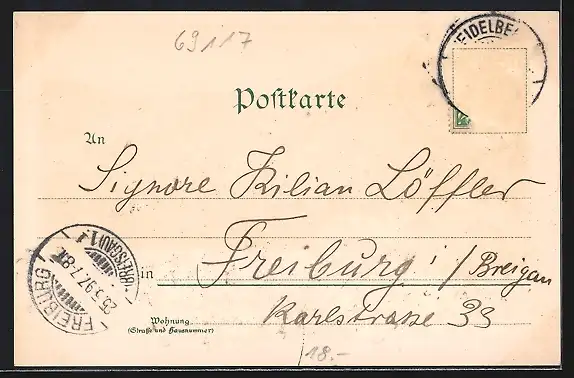 69117
HEIDELBE
Postkarte
An
Signore Kilian Löffler
in Freiburg i/Breisgau
Karlstrasse 33
Wohnung
(Straße und Hausnummer)
FREIBURG
25.5.97.7-8
(BREISGAU) 1
18.-